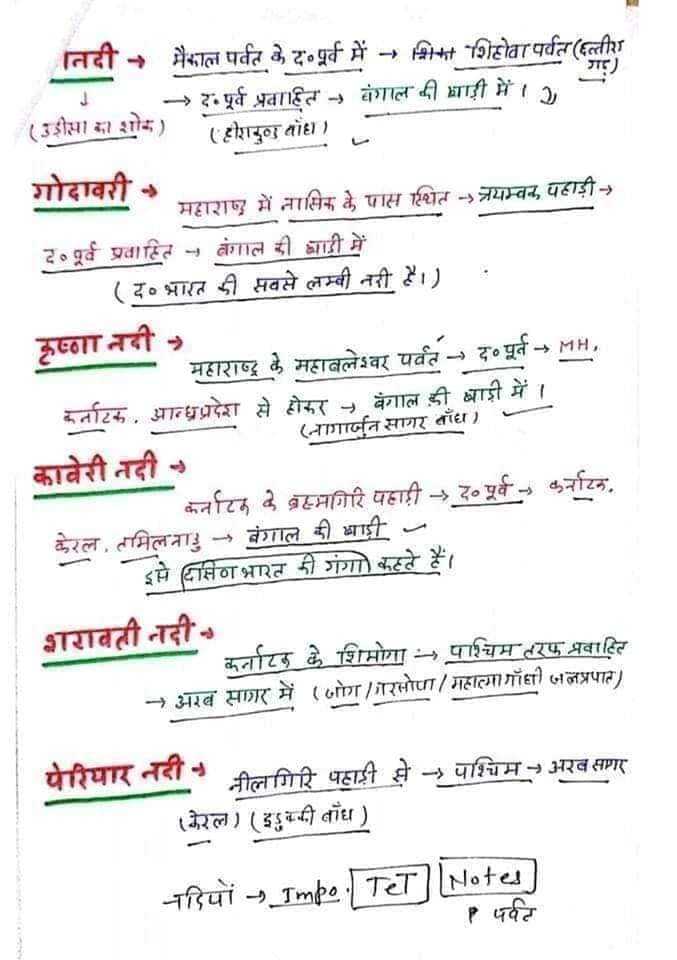 नदी → मैकाल पर्वत के द०पूर्व में → सिहोवा पर्वत (छत्तीसगढ़)
↓ → द०पूर्व प्रवाहित → बंगाल की खाड़ी में।
(उड़ीसा का शोक) (हीराकुण्ड बाँध)
गोदावरी → महाराष्ट्र में नासिक के पास स्थित → त्रयम्बक पहाड़ी →
द०पूर्व प्रवाहित → बंगाल की खाड़ी में
(द० भारत की सबसे लम्बी नदी है।)
कृष्णा नदी → महाराष्ट्र के महाबलेश्वर पर्वत → द०पूर्व → MH,
कर्नाटक, आन्ध्रप्रदेश से होकर → बंगाल की खाड़ी में।
(नागार्जुन सागर बाँध)
कावेरी नदी →
कर्नाटक के ब्रह्मगिरि पहाड़ी → द०पूर्व → कर्नाटक,
केरल, तमिलनाडु → बंगाल की खाड़ी
इसे दक्षिण भारत की गंगा कहते हैं।
शरावती नदी →
कर्नाटक के शिमोगा → पश्चिम तरफ प्रवाहित
→ अरब सागर में (जोग/गरसोपा/महात्मा गाँधी जलप्रपात)
पेरियार नदी → नीलगिरि पहाड़ी से → पश्चिम → अरब सागर
(केरल) (इडुक्की बाँध)
नदियों → Impo. TeT Notes
P पर्वत